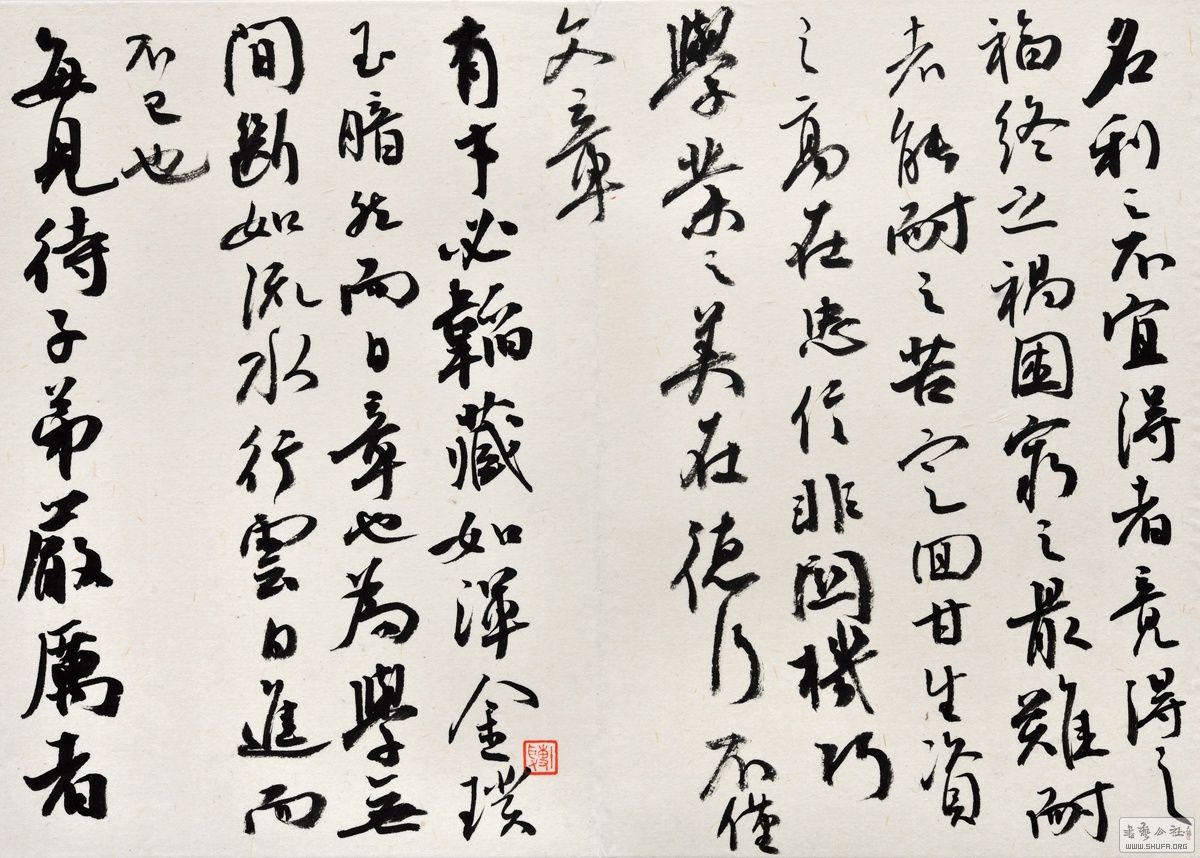 名利之不宜得者竟得之
福終为禍困窮之最難耐
者能耐之苦定回甘生資
之高在忠信非關機巧
學業之美在德行不僅
文章
有才必韜藏如渾金璞
玉暗然而日章也為學無
間斷如流水行雲日進而
不已也
每見待子弟嚴厲者
書藝公社
WWW.SHUFA.ORG